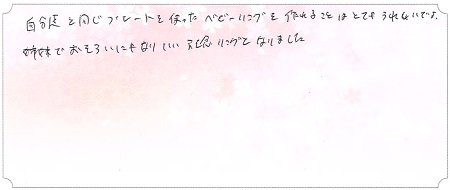 自分達と同じプレートを使ったベビーリングを作れることはとてもうれしいです。
姉妹でおそろいにもなりいい記念リングとなりました